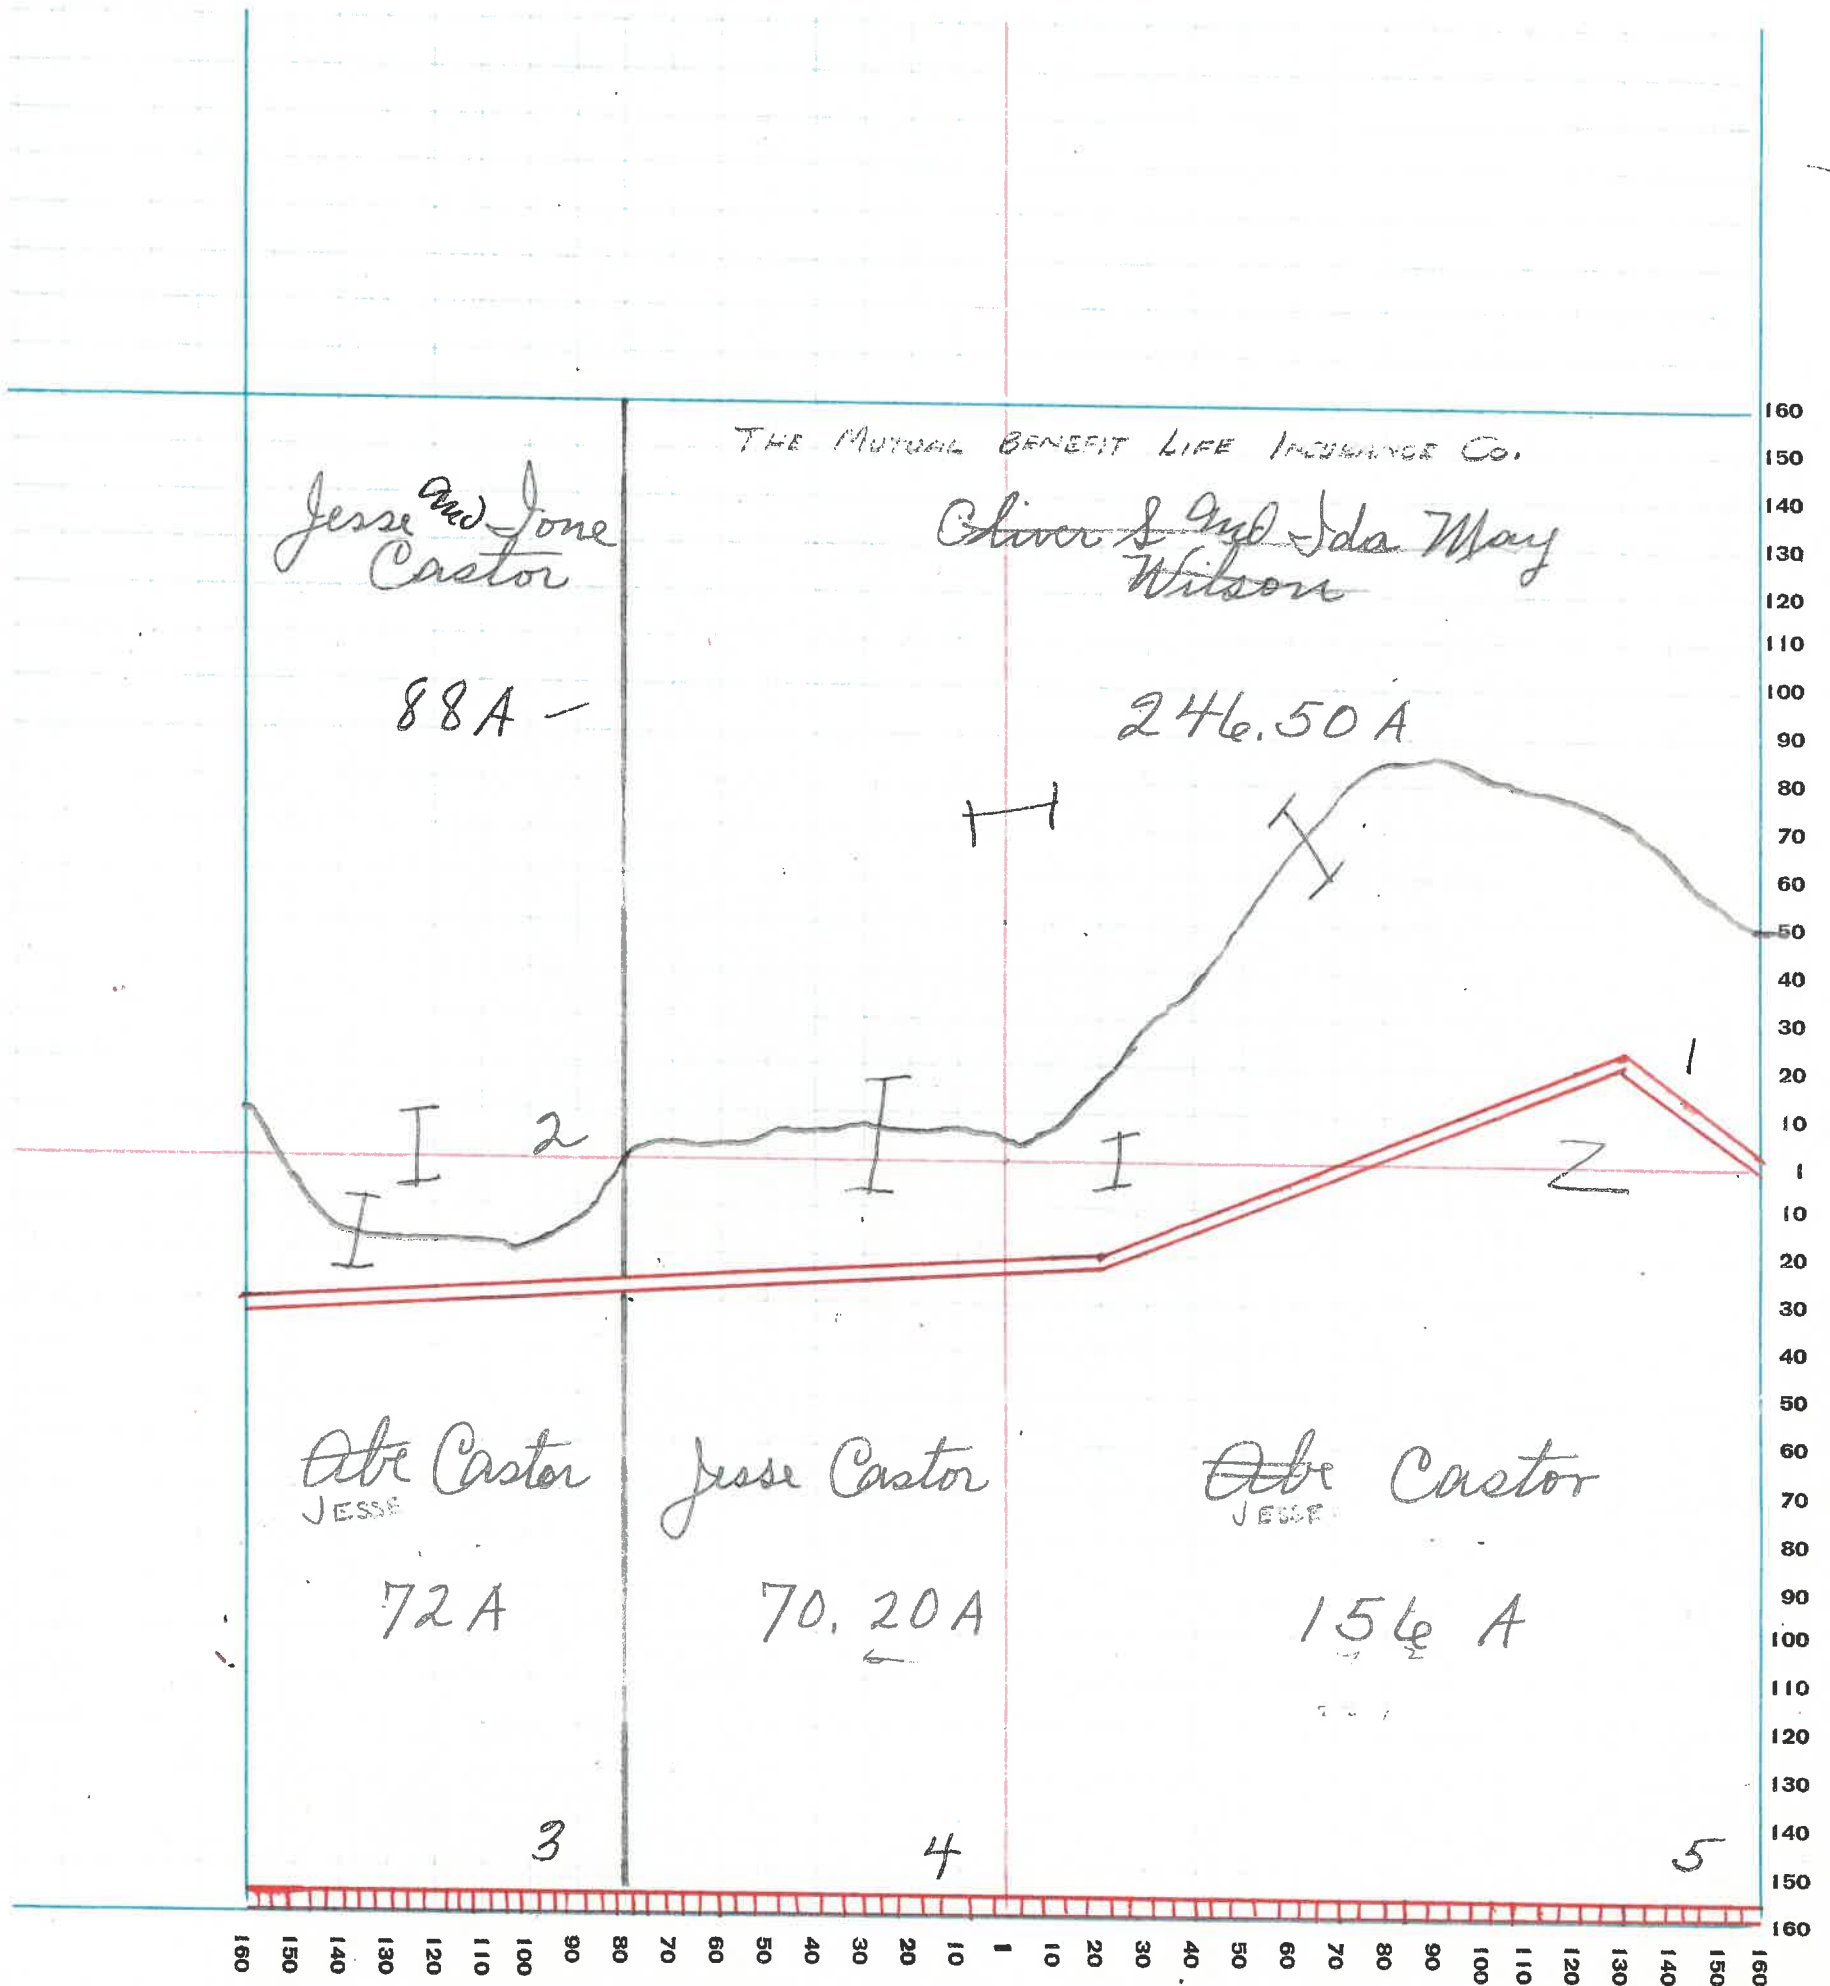 THE MUTUAL BENEFIT LIFE INSURANCE Co.
Jesse and Ione
Castor
Oliver S and Ida May
Wilson
88A -
246.50 A
2
1
2
Abe Castor
JESSE
Jesse Castor
Abe Castor
JESSE
72 A
70.20 A
156 A
3
4
5
160
150
140
130
120
110
100
90
80
70
60
50
40
30
20
10
1
10
20
30
40
50
60
70
80
90
100
110
120
130
140
150
160
160 150 140 130 120 110 100 90 80 70 60 50 40 30 20 10 1 10 20 30 40 50 60 70 80 90 100 110 120 130 140 150 160